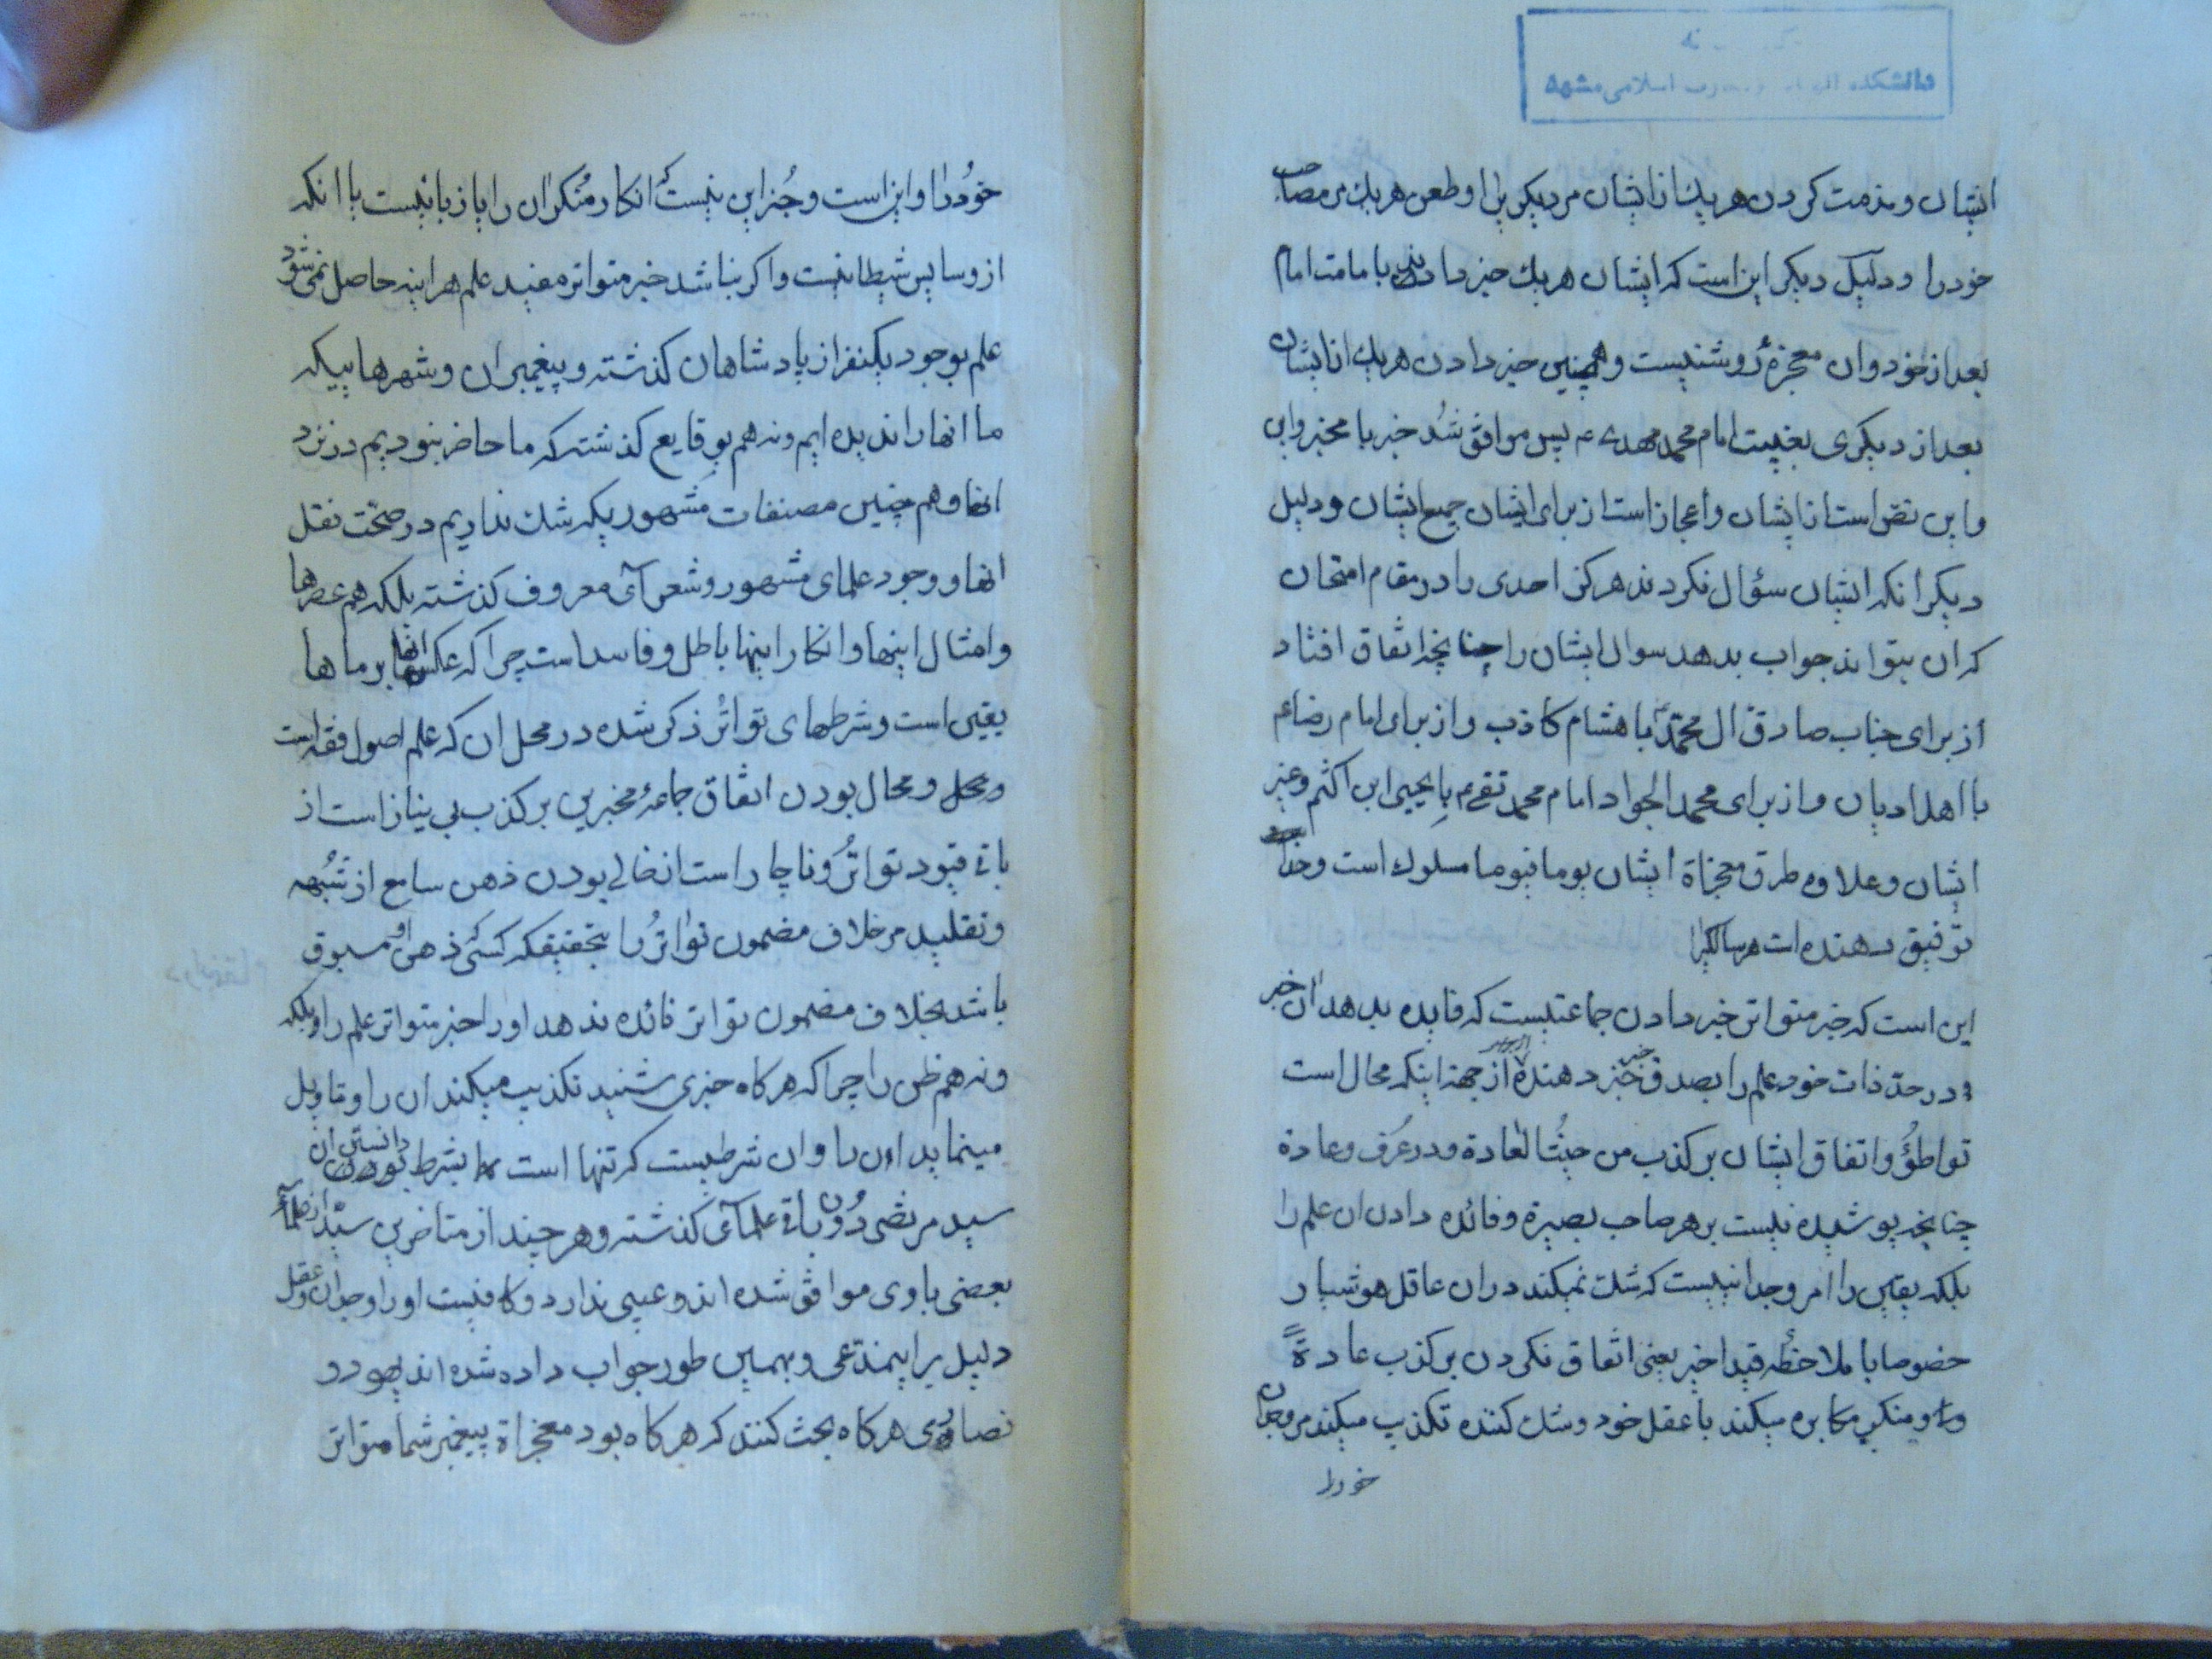 دانشکده الهیات و معارف اسلامی مشهد
ایشان و مذمت کردن هر یك از ایشان مر دیکری را و طعن هر یك بر مصاحب
خود را و دلیل دیکر این است که ایشان هر یك خبر دادند با مامت امام
بعد از خود و ان معجزهٔ روشنیست و همچنین خبر دادن هر یك از ایشان
بعد از دیکری بغیبت امام محمد مهدی عم پس موافق شد خبر با مخبر و این
و این نص است از ایشان و اعجاز است از برای ایشان جمیع ایشان و دلیل
دیکر انکه ایشان سؤال نکردند هرکز احدی را در مقام امتحان
که ان بتواند جواب بدهد سوال ایشان را چنانچه اتفاق افتاد
از برای جناب صادق ال محمد با هشام کاذب و از برای امام رضا عم
با اهل ادیان و از برای محمد الجواد امام محمد تقی عم با یحیی ابن اکثم و غیر
ایشان و علاوه طرق معجزاة ایشان یوما فیوما مسلوك است و خدا
توفیق دهنده است هر سالکیرا
این است که خبر متواتر خبر دادن جماعتیست که فایده بدهد ان خبر
در حد ذات خود علم را بصدق خبر دهنده از جهة اینکه محال است
تواطؤ و اتفاق ایشان بر کذب من حیث العادة و در عرف و عادة
چنانچه پوشیده نیست بر هر صاحب بصیرة و فائده دادن ان علم را
بلکه یقین را امر وجدانیست که شك نمیکند در ان عاقل هوشیار
خصوصا با ملاحظه قید اخیر یعنی اتفاق نکردن بر کذب عادةً
و منکر مکابره میکند با عقل خود و شك کننده تکذیب میکند مر وجدان
خود را
خود را و این است و جز این نیست که انکار منکران را پا زبانیست با انکه
از وساوس شیطانیست و اکر نباشد خبر متواتر مفید علم هر اینه حاصل نمیشود
علم بوجود یکنفر از پادشاهان کذشته و پیغمبران و شهرهاییکه
ما انها را ندیده ایم و نه هم بوقایع کذشته که ما حاضر نبودیم در نزد
انها و هم چنین مصنفات مشهوریکه شك نداریم در صحّت نقل
انها و وجود علمای مشهور و شعرآی معروف کذشته بلکه هم عصرها
و امثال اینها و انکار اینها باطل و فاسد است چرا که عکس انها بر ماها
یقین است و شرطهای تواتر ذکر شده در محل ان که علم اصول فقه است
و محال بودن اتفاق جماعهٔ مخبرین بر کذب بی نیاز است از
باقی قیود تواتر و ناچار است از خالی بودن ذهن سامع از شبهه
و تقلید مر خلاف مضمون تواتر را بتحقیقکه کسی که ذهن او مسبوق
باشد بخلاف مضمون تواتر فائده ندهد او را خبر متواتر علم را و بلکه
و نه هم ظن را چرا که هرکاه خبری شنید تکذیب میکند ان را و تاویل
مینماید ان را و ان شرطیست که تنها است بشرط دانستن ان
سید مرتضی دون باقی علمآی کذشته و هر چند از متاخرین سیّد از علمآء
بعضی با وی موافق شده اند و عیبی ندارد و کافیست او را وجدان و عقل
دلیل بر اینمدّعی و بهمین طور جواب داده شده اند یهود و
نصاری هرکاه بحث کنند که هرکاه بود معجزاة پیغمبر شما متواتر